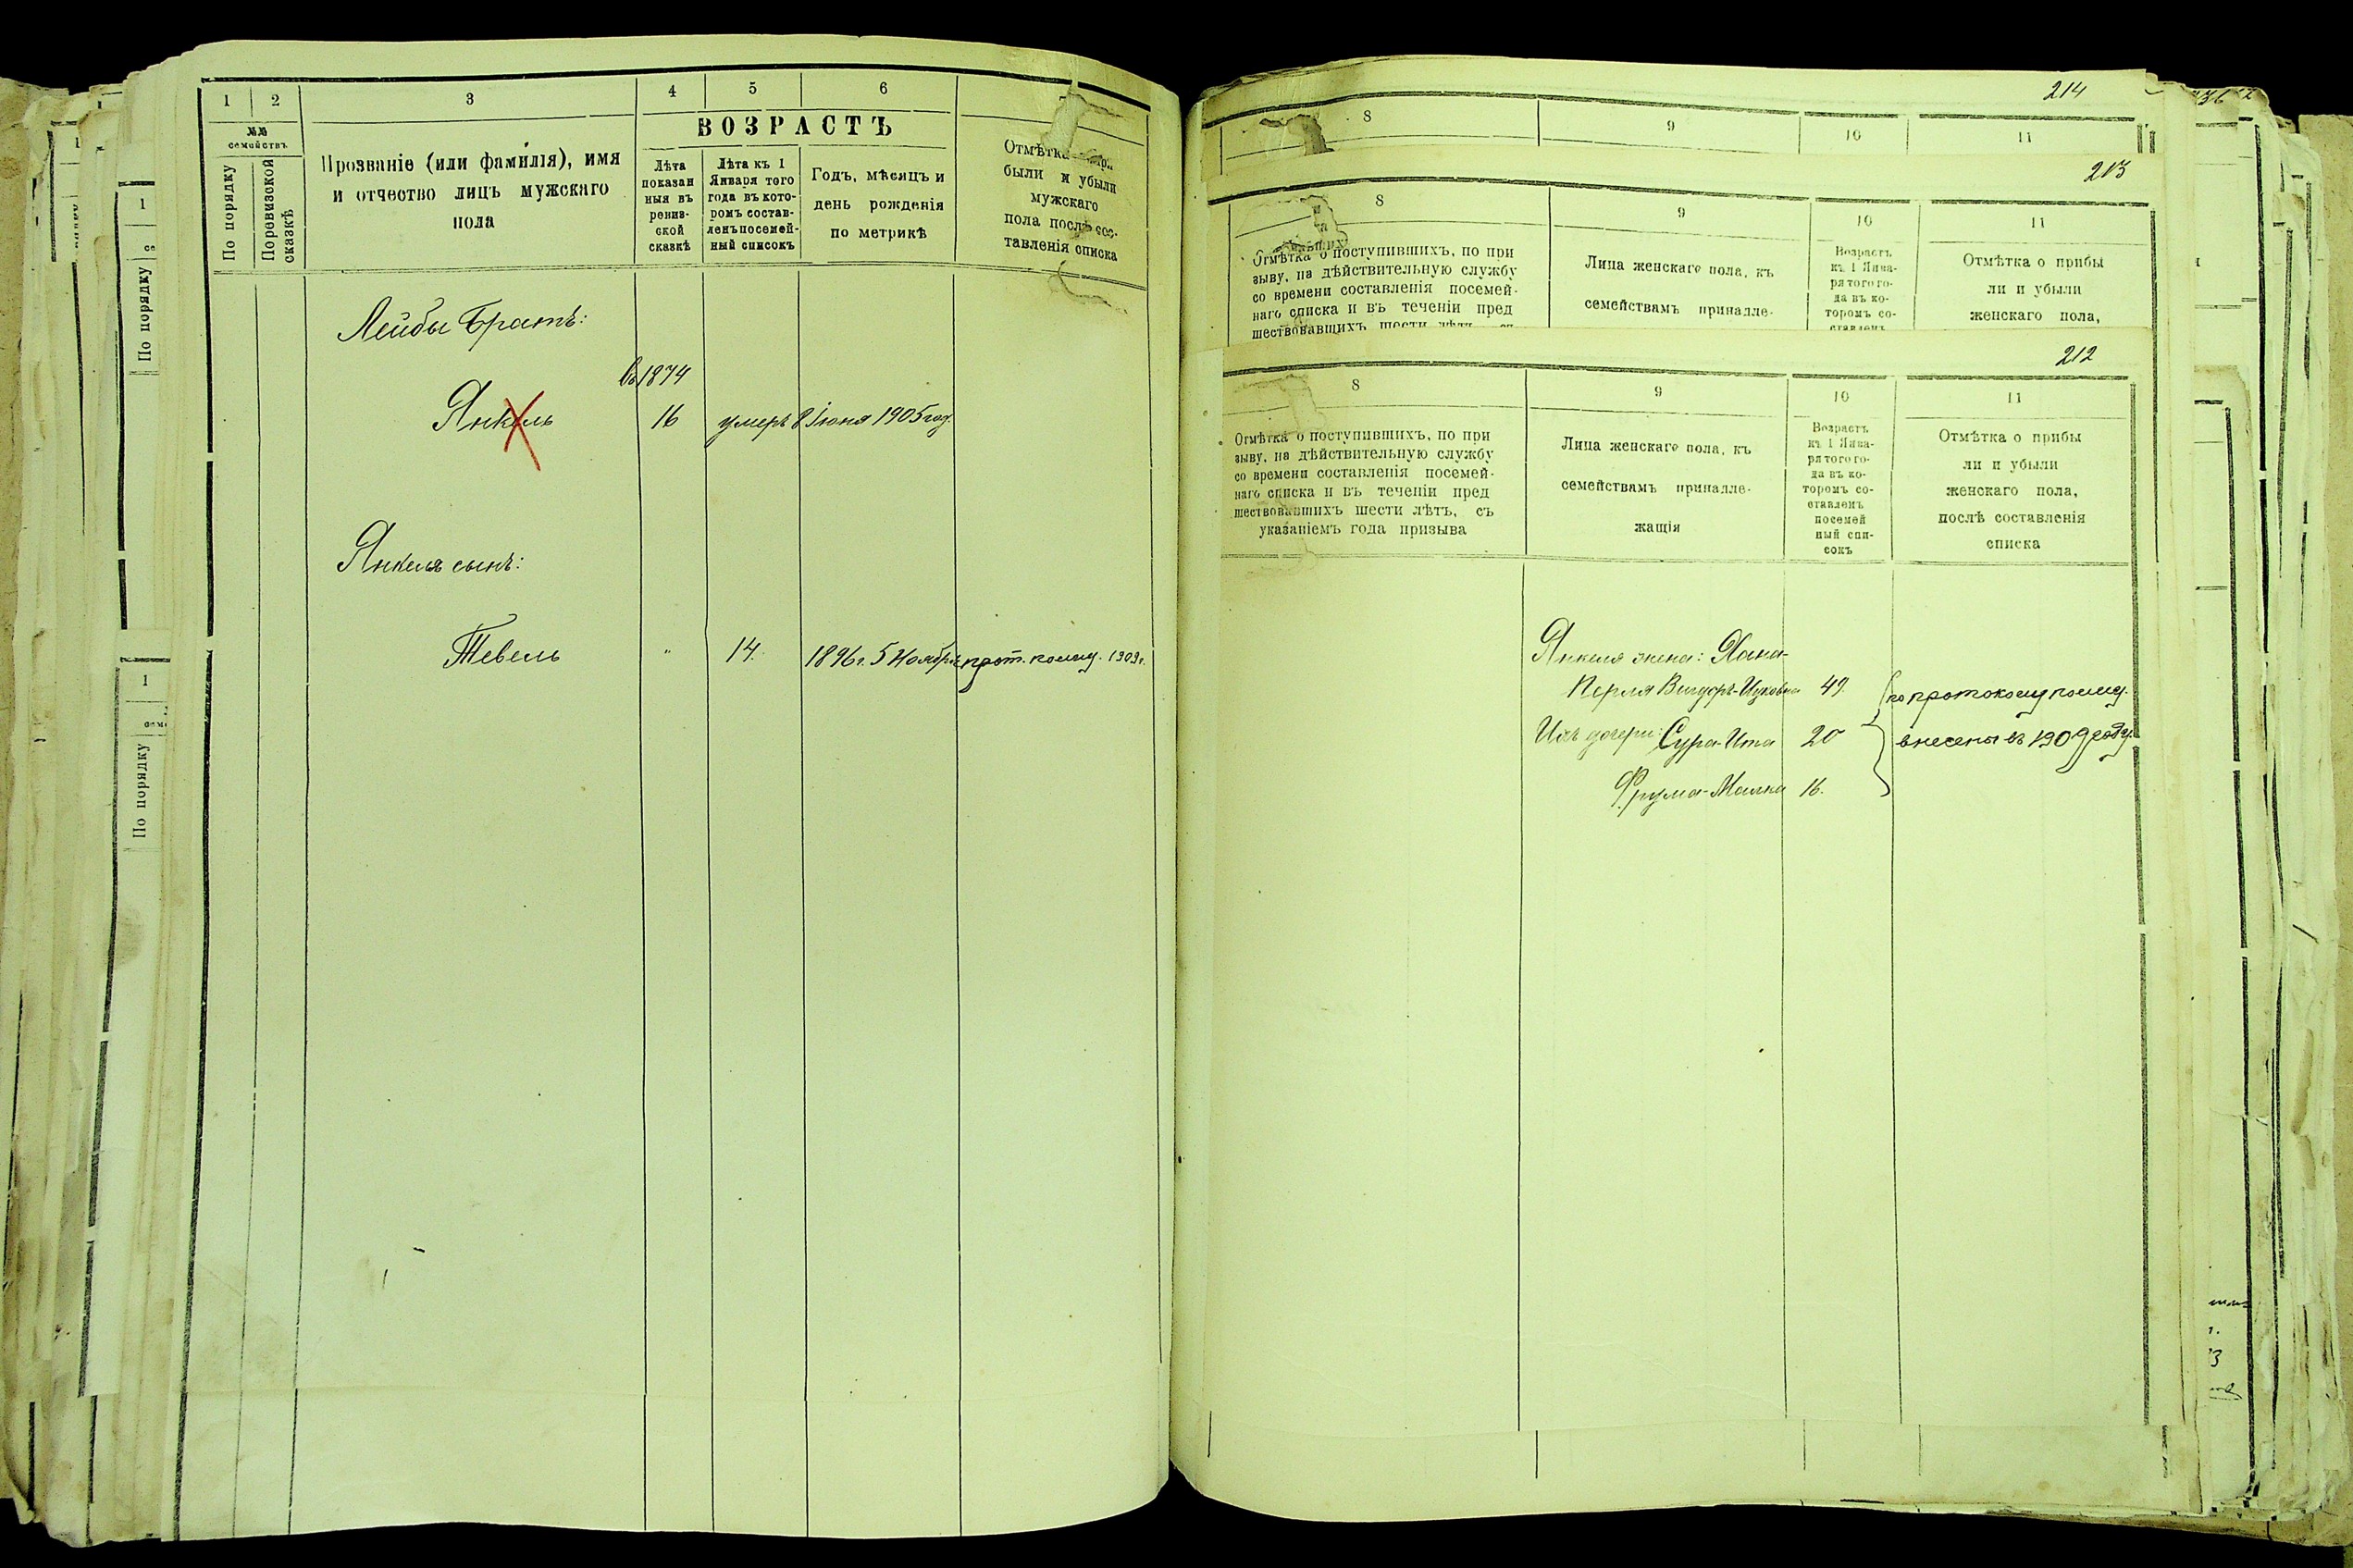 1 2 3 4 5 6
№№ семействъ
По порядку
Поревизской сказкѣ
Прозваніе (или фамилія), имя
и отчество лицъ мужскаго
пола
ВОЗРАСТЪ
Лѣта
показан
ныя въ
ревиз-
ской
сказкѣ
Лѣта къ 1
Января того
года въ кото-
ромъ состав-
ленъ посемей-
ный списокъ
Годъ, мѣсяцъ и
день рожденія
по метрикѣ
Отмѣтка
были и убыли
мужскаго
пола послѣ сос-
тавленія списка
Лейбы Братъ:
въ 1874
Янкель 16 умеръ 8 Іюня 1905 год.
Янкеля сынъ:
Тевель " 14. 1896 г. 5 Ноября прот. 1909 г.
1
По порядку
1
По порядку
214
8 9 10 11
213
8 9 10 11
Отмѣтка о поступившихъ, по при
зыву, на дѣйствительную службу
со времени составленія посемей-
наго списка и въ теченіи пред
шествовавшихъ шести лѣтъ, съ
Лица женскаго пола, къ
семействамъ принадле-
Возрастъ
къ 1 Янва-
ря того го-
да въ ко-
торомъ со-
ставленъ
Отмѣтка о прибы
ли и убыли
женскаго пола,
212
8 9 10 11
Отмѣтка о поступившихъ, по при
зыву, на дѣйствительную службу
со времени составленія посемей-
наго списка и въ теченіи пред
шествовавшихъ шести лѣтъ, съ
указаніемъ года призыва
Лица женскаго пола, къ
семействамъ принадле-
жащія
Возрастъ
къ 1 Янва-
ря того го-
да въ ко-
торомъ со-
ставленъ
посемей
ный спи-
сокъ
Отмѣтка о прибы
ли и убыли
женскаго пола,
послѣ составленія
списка
Янкеля жена: Хана-
Перля 49. по протоколу
Ихъ дочери: Сура-Ита 20 внесены въ 1909 году.
Фрума-Малка 16.